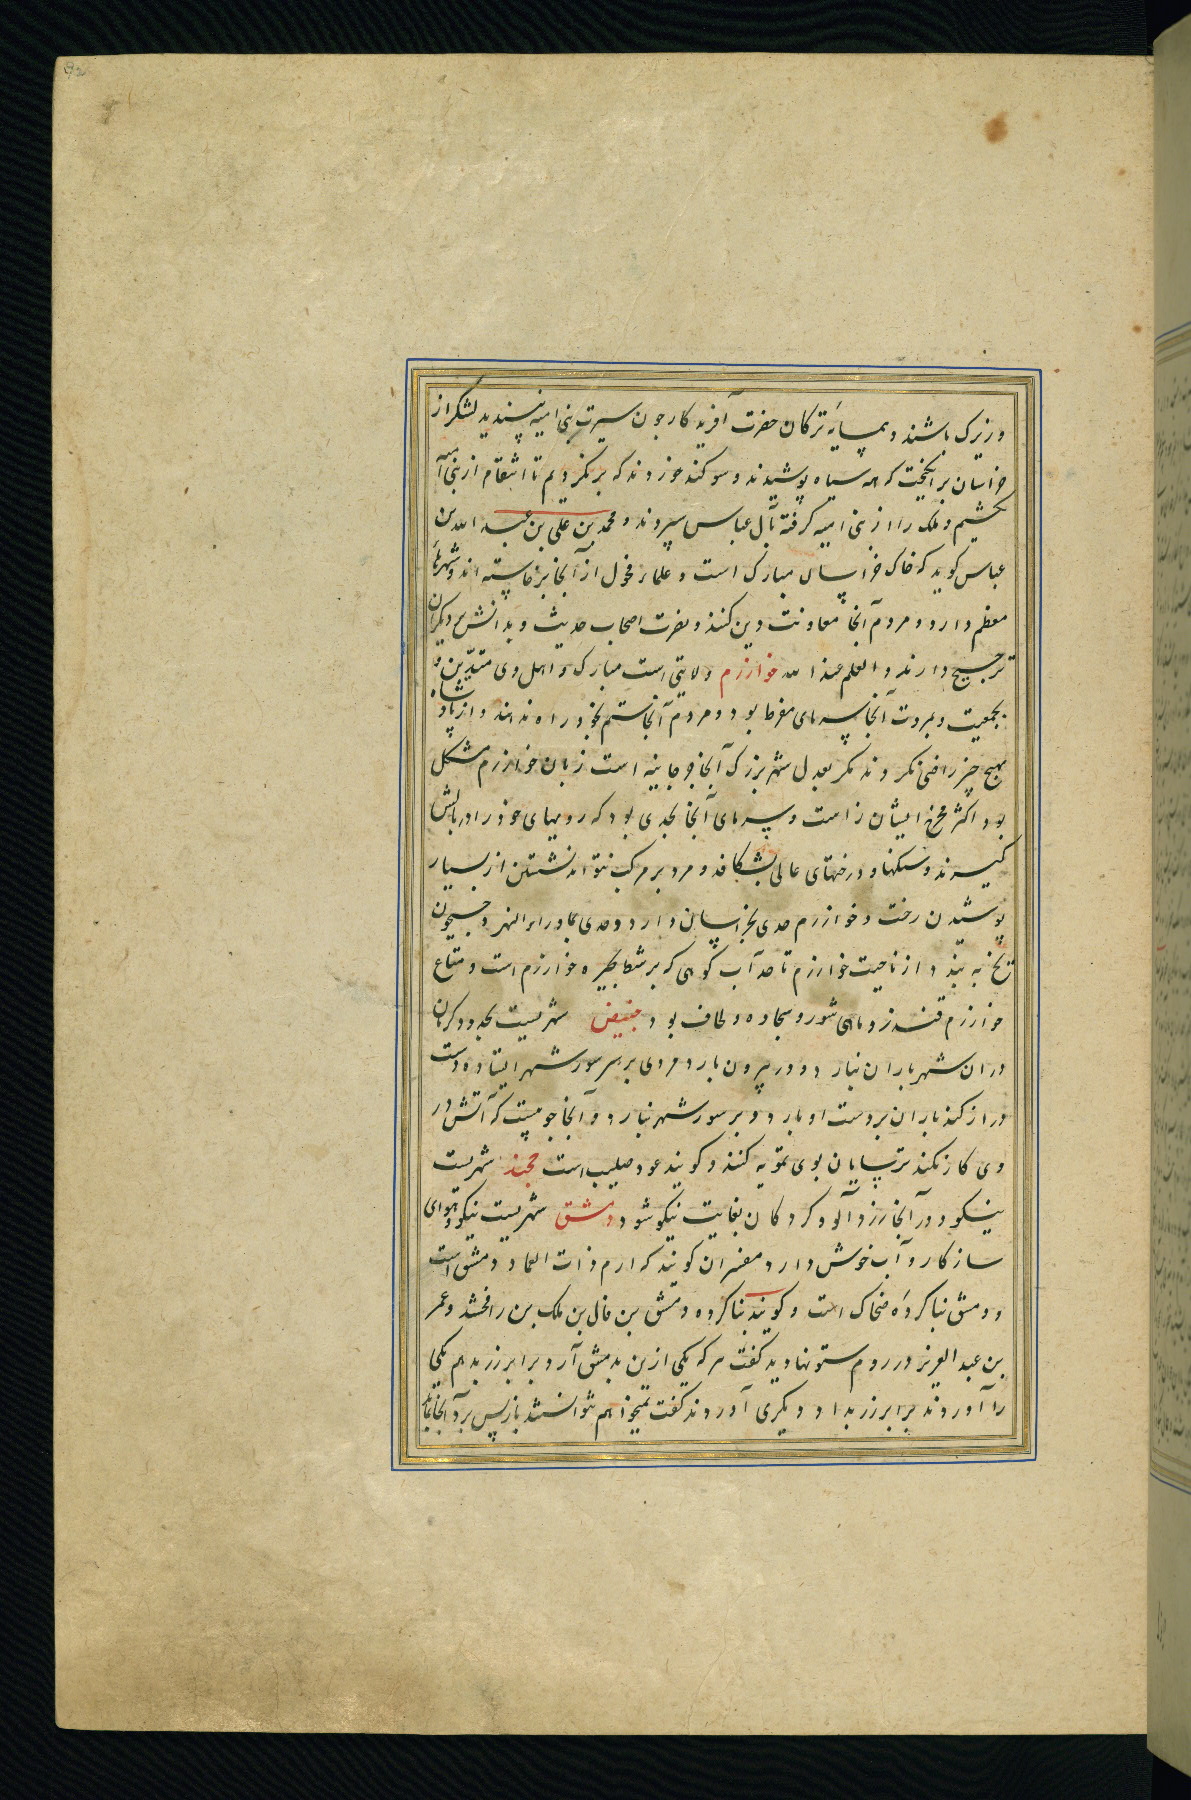 و زیرک باشند و همسایهٔ ترکان حضرت آفریدکار چون سیرت بنی امیه نپسندید لشکر از
خراسان برانکیخت که همه سیاه پوشیدند و سوکند خوردند که برنکردیم تا انتقام از بنی امیه
بکشیم و ملک را از بنی امیه کرفته بآل عباس سپردند و محمد بن علی بن عبد الله بن
عباس کوید که خاک خراسان مبارک است و علماء فحول از آنجا برخاسته اند و شهرهای
معظم دارد و مردم آنجا معاونت دین کنند و نصرت اصحاب حدیث و بدانش بر دیکران
ترجیح دارند والعلم عند الله خوارزم ولایتی است مبارک و اهل وی متدین و
بجمعیت و بمروت آنجا سرمای مفرط بود و مردم آنجا ستم بخود راه ندهند و از پادشاه
بهیچ چیز راضی نکردند مکر بعدل شهر بزرک آنجا جرجانیه است زبان خوارزم مشکل
بود اکثر مخرج ایشان ز است و سرمای آنجا بحدی بود که رویهای خود را در بالش
کیرند و سنکها و درختهای عالی بشکافد و مرد بر مرکب نتواند نشستن از بسیار
پوشیدن رخت و خوارزم حدی بخراسان دارد و حدی بماوراء النهر و جیحون
یخ به بندد از ناحیت خوارزم تا حد آب کوهی که بر شط بحیره خوارزم است و متاع
خوارزم قندز و ماهی شور و سجاده و لحاف بود خبیص شهریست بحدود کرمان
دران شهر باران نبارد و در بیرون بارد مردی بر سر سور شهر ایستاده دست
دراز کند باران بر دست او بارد و بر سور شهر نبارد و آنجا چوبیست که آتش در
وی کار نکند ترسایان بوی تمویه کنند و کویند عود صلیب است خجند شهریست
نیکو و در آنجا رز و آلو و کردکان بغایت نیکو شود دمشق شهریست نیکو و هوای
سازکار و آب خوش دارد مفسران کویند که ارم ذات العماد دمشق است
و دمشق بنا کردهٔ ضحاک است و کویند بنا کرده دمشق بن فال بن ملک بن ارفخشد و عمر
بن عبد العزیز در روم ستونها دید کفت هر که یکی ازین بدمشق آرد برابر زر بدهم یکی
را آوردند برابر زر بداد دیکری آوردند کفت نمیخواهم نتوانستند بازپس برد آنجا بماند